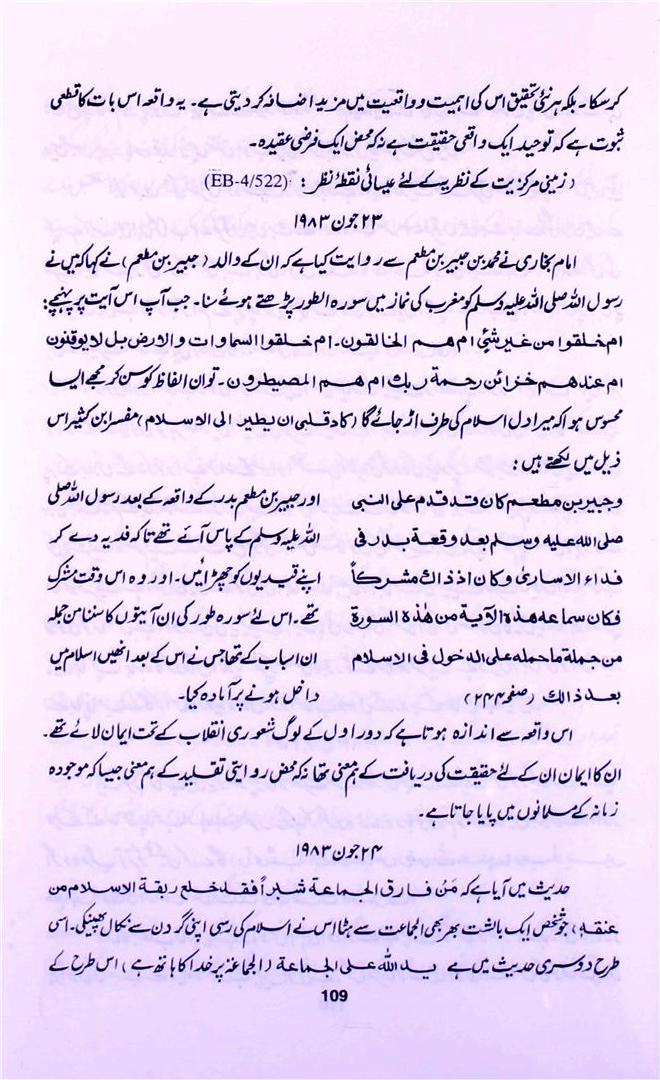 کرسکا۔ بلکہ ہر نئی تحقیق اس کی اہمیت و واقعیت میں مزید اضافہ کر دیتی ہے۔ یہ واقعہ اس بات کا قطعی
ثبوت ہے کہ توحید ایک واقعی حقیقت ہے نہ کہ محض ایک فرضی عقیدہ۔
(زمینی مرکزیت کے نظریہ کے لئے عیسائی نقطۂ نظر: (EB-4/522)
۲۳ جون ۱۹۸۳
امام بخاری نے محمد بن جبیر بن مطعم سے روایت کیا ہے کہ ان کے والد (جبیر بن مطعم) نے کہا کہ میں نے
رسول اللہ صلی اللہ علیہ وسلم کو مغرب کی نماز میں سورہ الطور پڑھتے ہوئے سنا۔ جب آپ اس آیت پر پہنچے:
ام خلقوا من غیر شیئ ام ھم الخالقون۔ ام خلقوا السماوات والارض بل لایوقنون
ام عندھم خزائن رحمۃ ربک ام ھم المصیطرون۔ تو ان الفاظ کو سن کر مجھے ایسا
محسوس ہوا کہ میرا دل اسلام کی طرف اڑ جائے گا (کاد قلبی ان یطیر الی الاسلام) مفسر ابن کثیر اس
ذیل میں لکھتے ہیں:
وجبیر بن مطعم کان قد قدم علی النبی
صلی اللہ علیہ وسلم بعد وقعۃ بدر فی
فداء الاساریٰ وکان اذ ذاک مشرکاً
فکان سماعہ ھذہ الآیۃ من ھٰذہ السورۃ
من جملۃ ما حملہ علی الدخول فی الاسلام
بعد ذالک (صفحہ ۲۴۴)
اور جبیر بن مطعم بدر کے واقعہ کے بعد رسول اللہ صلی
اللہ علیہ وسلم کے پاس آئے تھے تاکہ فدیہ دے کر
اپنے قیدیوں کو چھڑائیں۔ اور وہ اس وقت مشرک
تھے۔ اس لئے سورہ طور کی ان آیتوں کا سننا من جملہ
ان اسباب کے تھا جس نے اس کے بعد انھیں اسلام میں
داخل ہونے پر آمادہ کیا۔
اس واقعہ سے اندازہ ہوتا ہے کہ دور اول کے لوگ شعوری انقلاب کے تحت ایمان لائے تھے۔
ان کا ایمان ان کے لئے حقیقت کی دریافت کے ہم معنی تھا نہ کہ محض روایتی تقلید کے ہم معنی جیسا کہ موجودہ
زمانہ کے مسلمانوں میں پایا جاتا ہے۔
۲۴ جون ۱۹۸۳
حدیث میں آیا ہے کہ مَن فارق الجماعۃ شبراً فقد خلع ربقۃ الاسلام من
عنقہ (جو شخص ایک بالشت بھر بھی الجماعت سے ہٹا اس نے اسلام کی رسی اپنی گردن سے نکال پھینکی۔ اسی
طرح دوسری حدیث میں ہے ید اللہ علی الجماعۃ (الجماعۃ پر خدا کا ہاتھ ہے) اس طرح کے
109